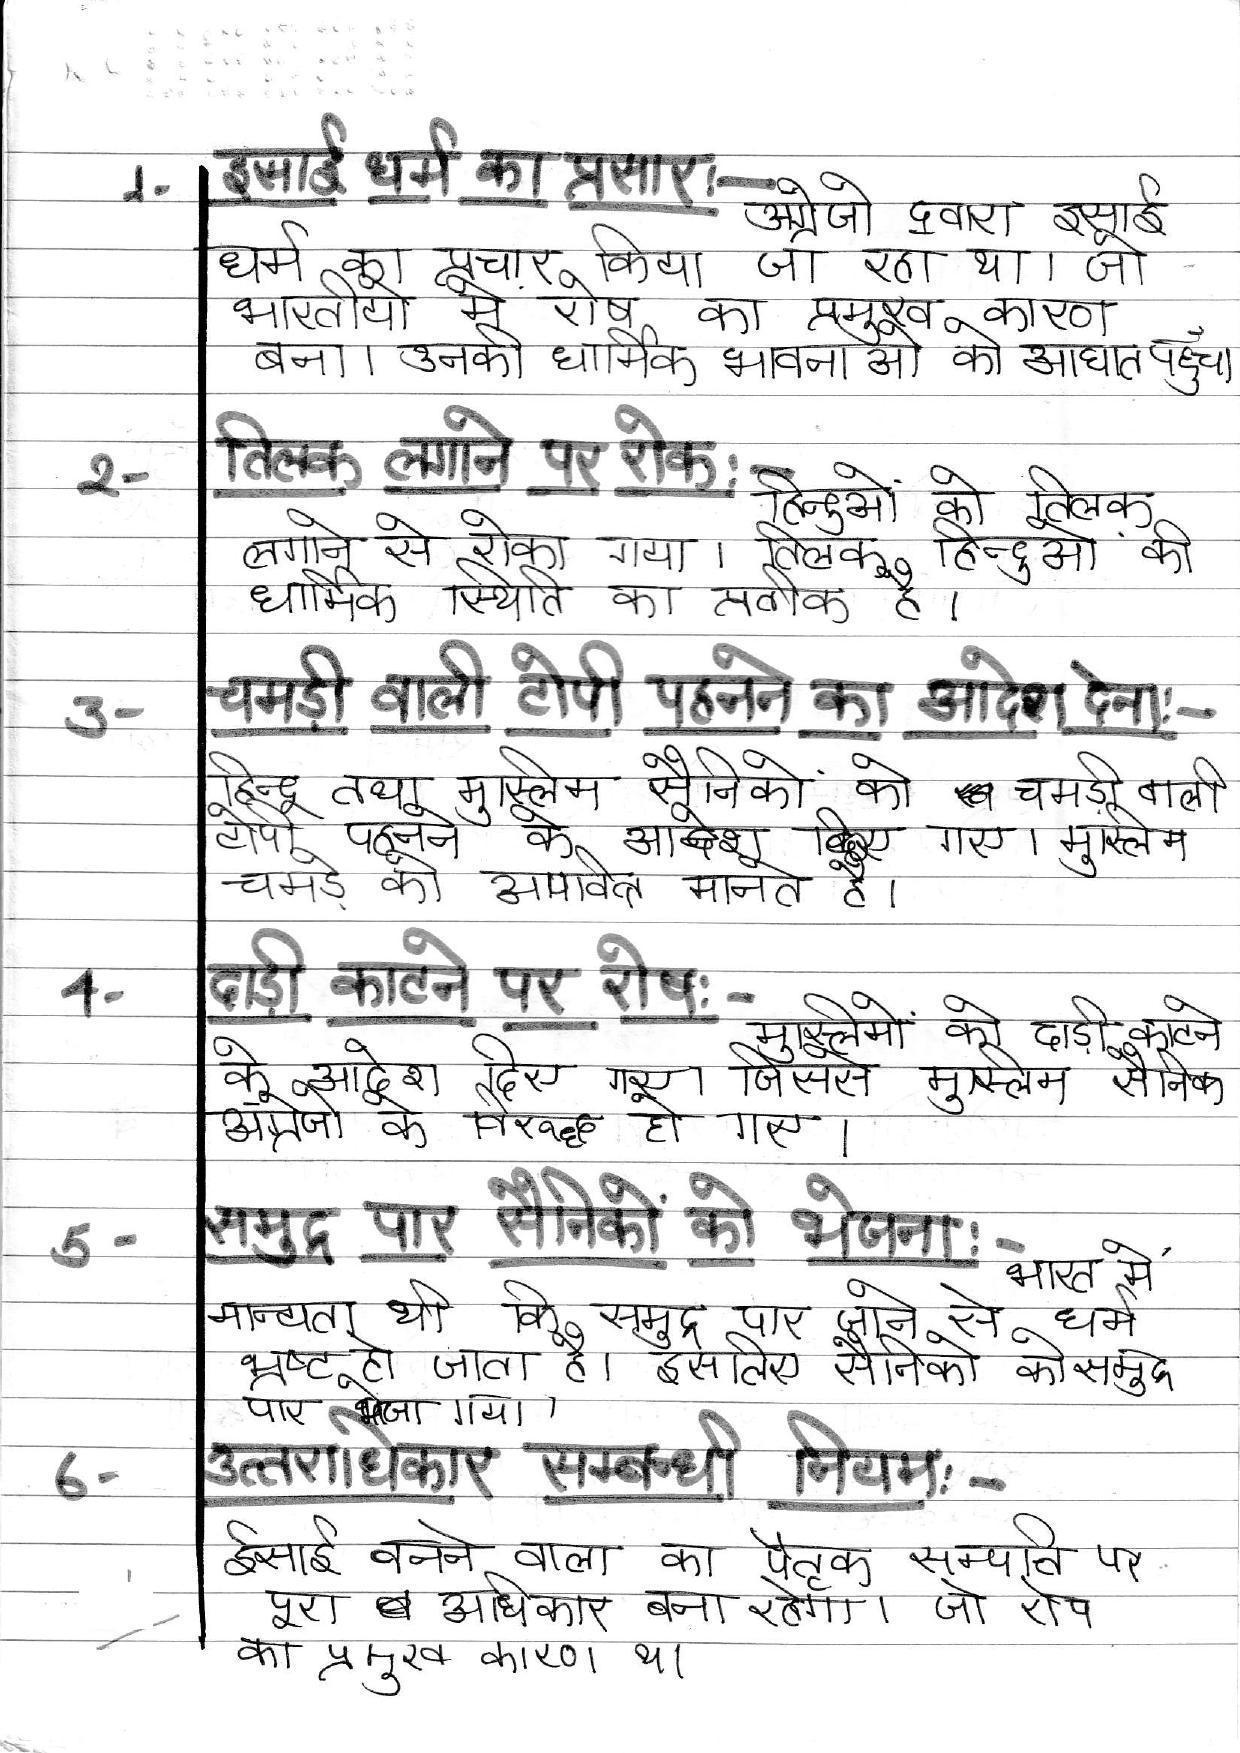 1- इसाई धर्म का प्रसार:-
अंग्रेजो द्वारा इसाई
धर्म का प्रचार किया जा रहा था। जो
भारतीयो मे रोष का प्रमुख कारण
बना। उनकी धार्मिक भावनाओ को आघात पहुँचा
2- तिलक लगाने पर रोक:-
हिन्दुओं को तिलक
लगाने से रोका गया। तिलक हिन्दुओं की
धार्मिक स्थिति का प्रतीक है।
3- चमड़ी वाली टोपी पहनने का आदेश देना:-
हिन्दू तथा मुस्लिम सैनिकों को चमड़ी वाली
टोपी पहनने के आदेश दिए गए। मुस्लिम
चमड़े को अपवित्र मानते है।
4- दाड़ी काटने पर रोष:-
मुस्लिमों को दाड़ी काटने
के आदेश दिए गए। जिससे मुस्लिम सैनिक
अंग्रेजो के विरुद्ध हो गए।
5- समुद्र पार सैनिकों को भेजना:-
भारत में
मान्यता थी कि समुद्र पार जाने से धर्म
भ्रष्ट हो जाता है। इसलिए सैनिको को समुद्र
पार भेजा गया।
6- उत्तराधिकार सम्बन्धी नियम:-
ईसाई बनने वाला का पैतृक सम्पति पर
पूरा अधिकार बना रहेगा। जो रोष
का प्रमुख कारण था।